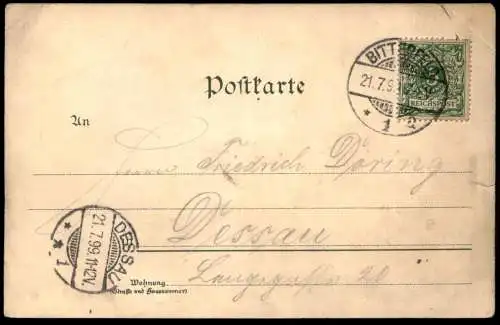 BITTERFELD
21.7.99
* 1 a
5
REICHSPOST
Postkarte
An
Herrn Friedrich Döring
Dessau
Langegasse 20
Wohnung
(Straße und Hausnummer)
DESSAU
21.7.99.11-12V.
* 1 *